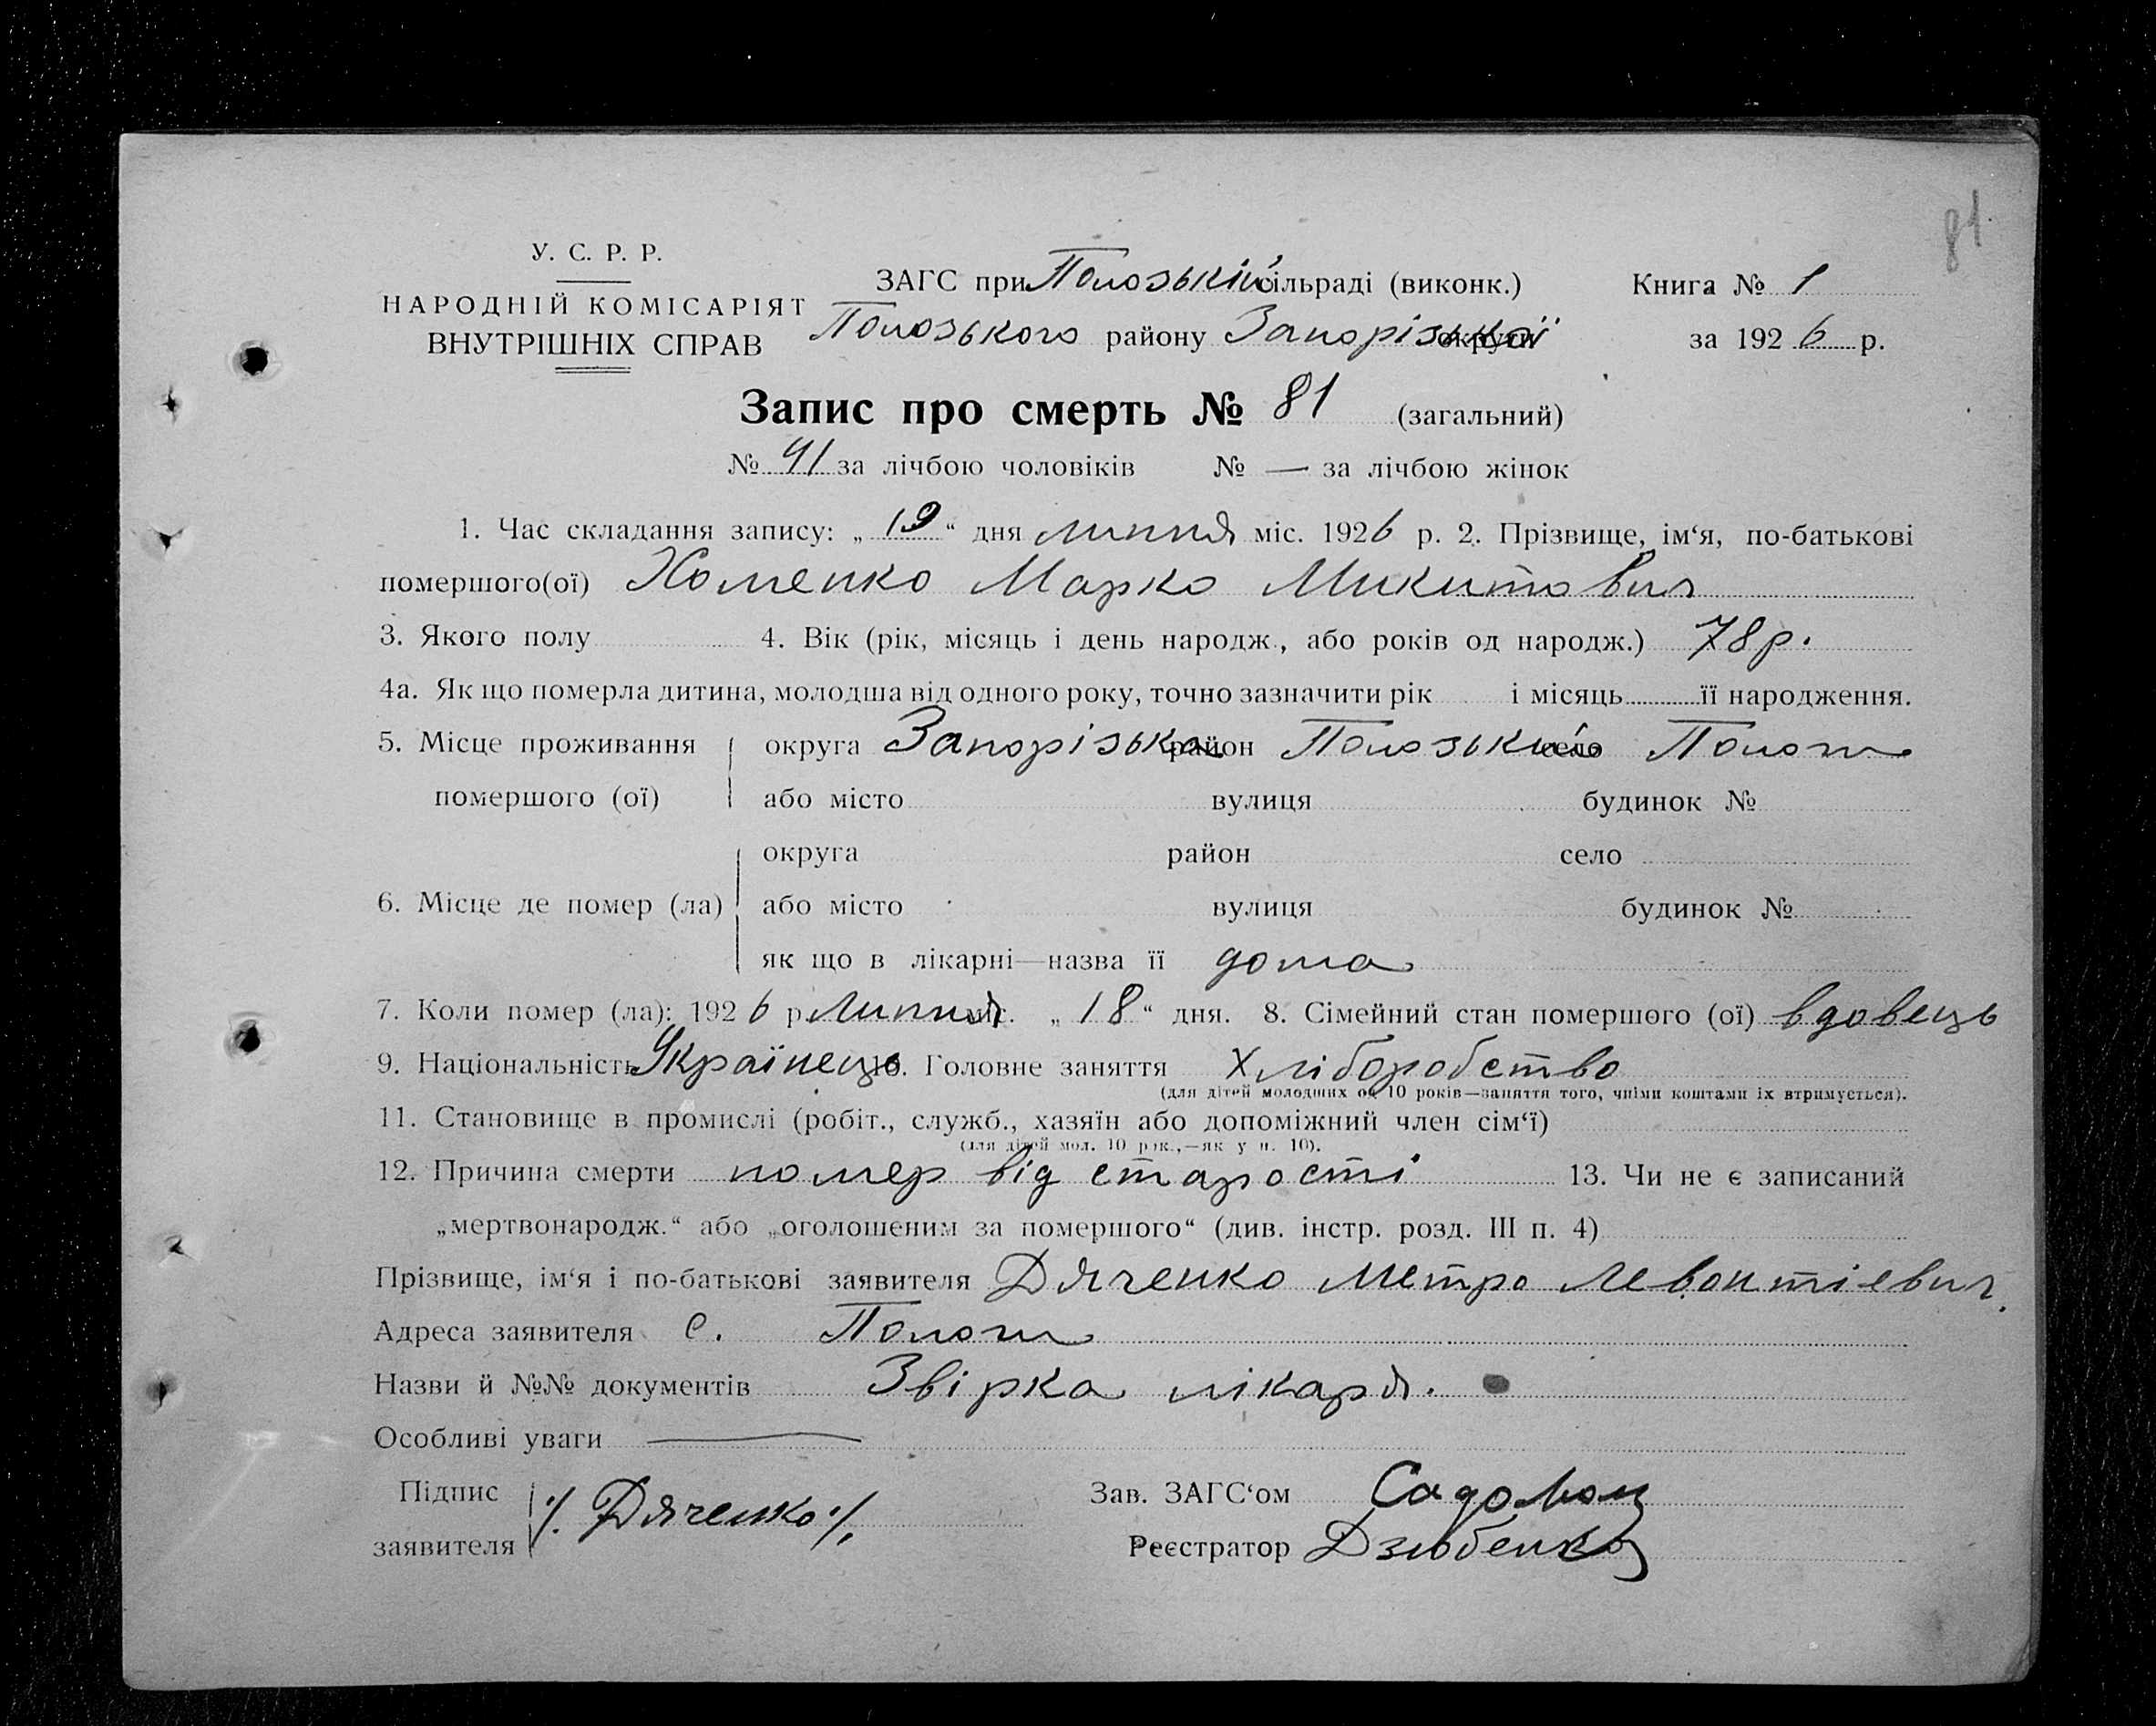 81.
У. С. Р. Р.
НАРОДНІЙ КОМІСАРІЯТ
ВНУТРІШНІХ СПРАВ
ЗАГС при Пологській сільраді (виконк.) Книга № 1
Пологського району Запорізької округи за 1926 р.
Запис про смерть № 81 (загальний)
№ 41 за лічбою чоловіків № — за лічбою жінок
1. Час складання запису: „19“ дня липня міс. 1926 р. 2. Прізвище, ім‘я, по-батькові
помершого(ої) Хоменко Марко Микитович
3. Якого полу 4. Вік (рік, місяць і день народж., або років од народж.) 78 р.
4а. Як що померла дитина, молодша від одного року, точно зазначити рік і місяць її народження.
5. Місце проживання округа Запорізька район Пологський село Пологи
помершого (ої) або місто вулиця будинок №
округа район село
6. Місце де помер (ла) або місто вулиця будинок №
як що в лікарні—назва її дома
7. Коли помер (ла): 1926 р. Липня міс. „18“ дня. 8. Сімейний стан помершого (ої) вдовець
9. Національність Українець 10. Головне заняття Хліборобство
(для дітей молодших од 10 років—заняття того, чиїми коштами їх втримується).
11. Становище в промислі (робіт., служб., хазяїн або допоміжний член сім‘ї)
(для дітей мол. 10 рок.,—як у п. 10).
12. Причина смерти помер від старості 13. Чи не є записаний
„мертвонародж.“ або „оголошеним за помершого“ (див. інстр. розд. III п. 4)
Прізвище, ім‘я і по-батькові заявителя Дяченко Метро Левонтіевич.
Адреса заявителя с. Пологи
Назви й №№ документів Звірка лікаря.
Особливі уваги —
Підпис заявителя ./. Дяченко ./.
Зав. ЗАГС‘ом
Реєстратор Дзюбенко